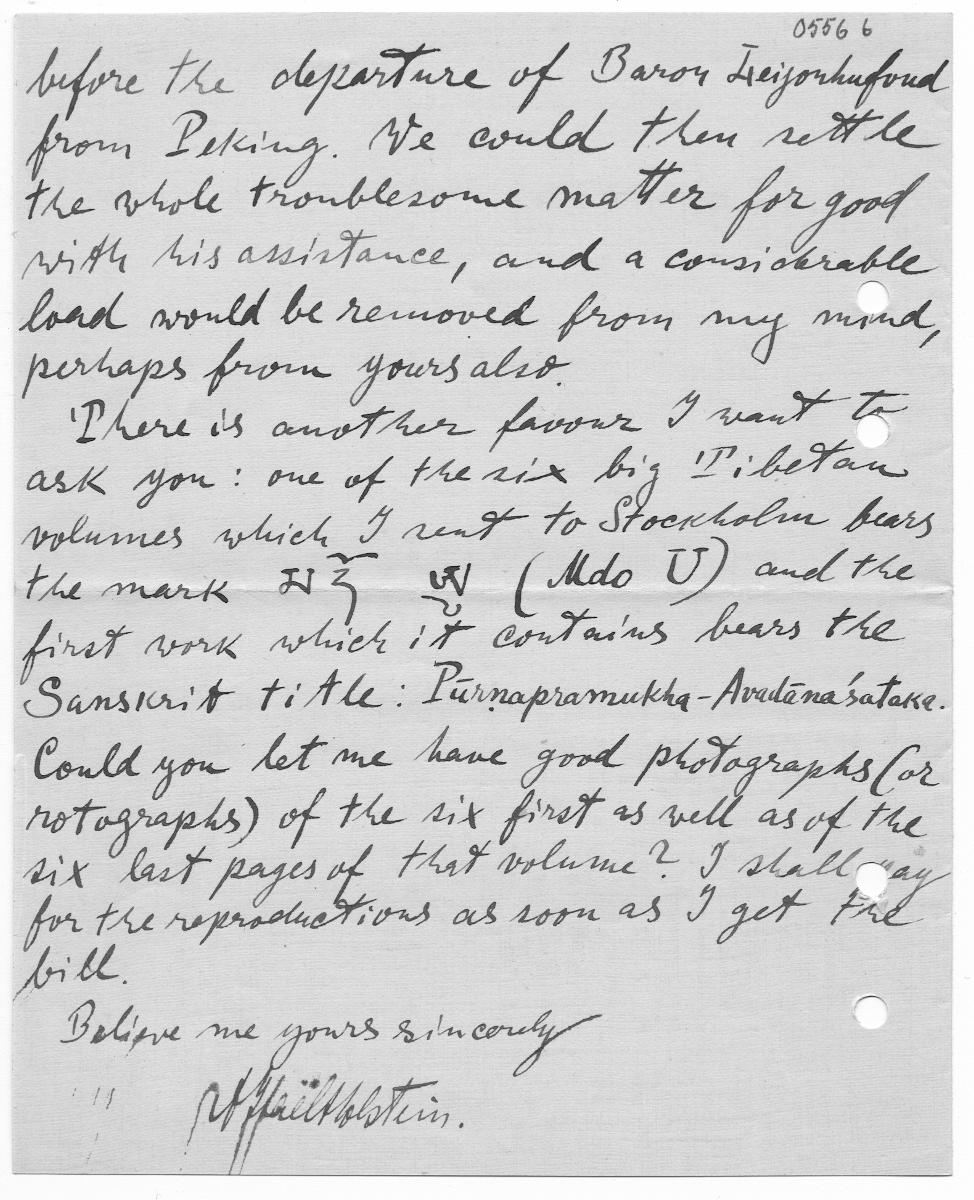 0556 6
before the departure of Baron Leijonhufvud
from Peking. We could then settle
the whole troublesome matter for good
with his assistance, and a considerable
load would be removed from my mind,
perhaps from yours also.
There is another favour I want to
ask you: one of the six big Tibetan
volumes which I sent to Stockholm bears
the mark མདོ ཨུ (Mdo U) and the
first work which it contains bears the
Sanskrit title: Pūrṇapramukha-Avadānaśataka.
Could you let me have good photographs (or
rotographs) of the six first as well as of the
six last pages of that volume? I shall pay
for the reproductions as soon as I get the
bill.
Believe me yours sincerely
A StaëlHolstein.